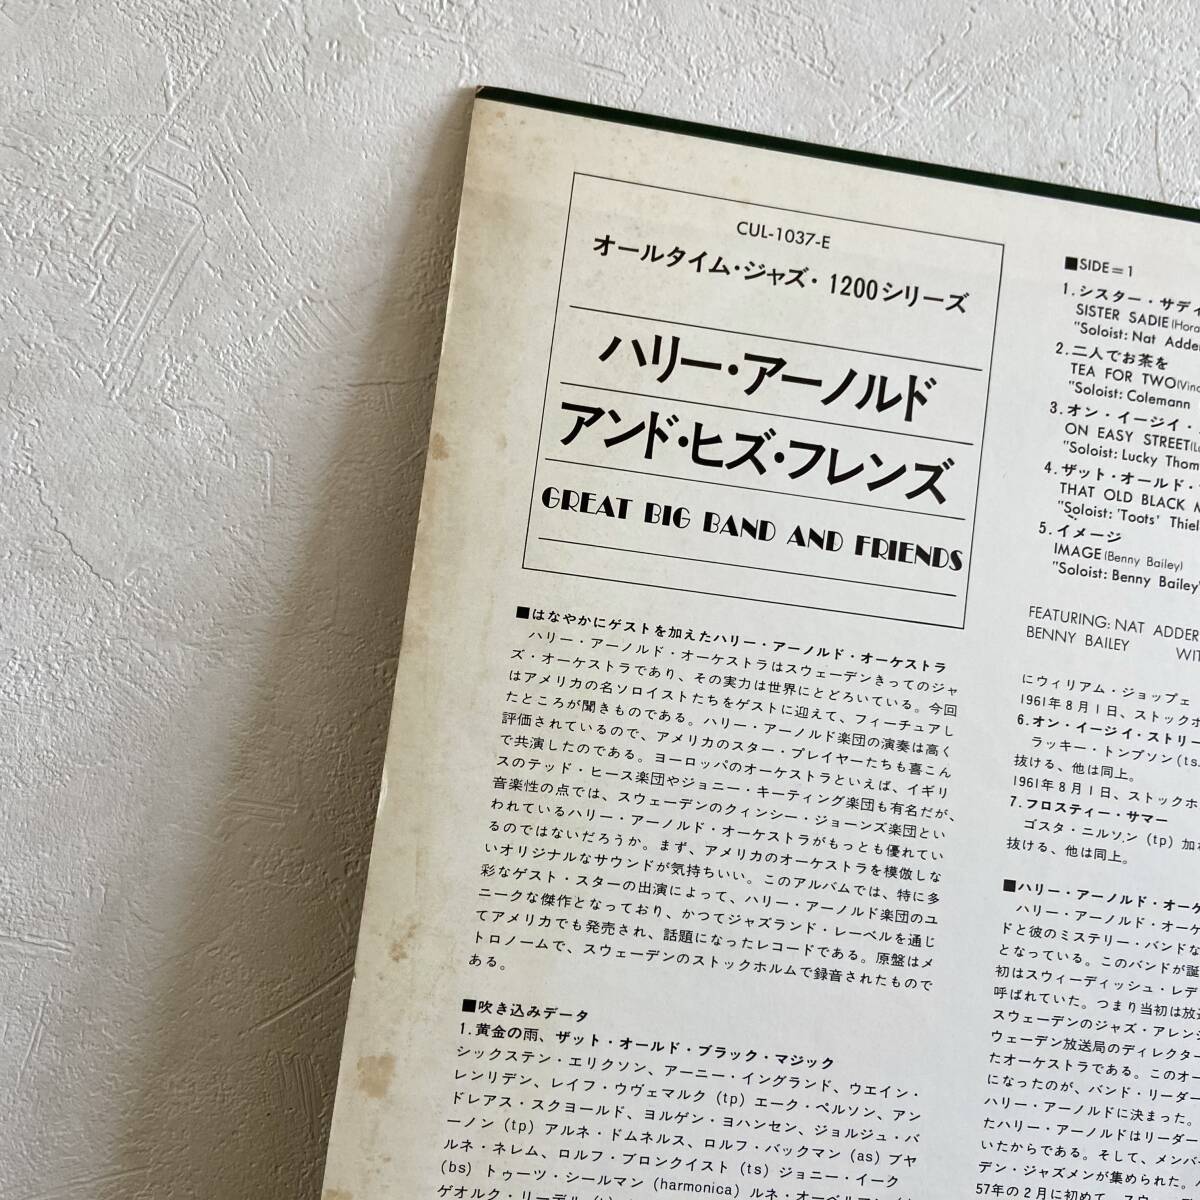 CUL-1037-E
オールタイム・ジャズ・1200シリーズ
ハリー・アーノルド
アンド・ヒズ・フレンズ
GREAT BIG BAND AND FRIENDS
■はなやかにゲストを加えたハリー・アーノルド・オーケストラ
ハリー・アーノルド・オーケストラはスウェーデンきってのジャ
ズ・オーケストラであり、その実力は世界にとどろいている。今回
はアメリカの名ソロイストたちをゲストに迎えて、フィーチュアし
たところが聞きものである。ハリー・アーノルド楽団の演奏は高く
評価されているので、アメリカのスター・プレイヤーたちも喜こん
で共演したのである。ヨーロッパのオーケストラといえば、イギリ
スのテッド・ヒース楽団やジョニー・キーティング楽団も有名だが、
音楽性の点では、スウェーデンのクィンシー・ジョーンズ楽団とい
われているハリー・アーノルド・オーケストラがもっとも優れてい
るのではないだろうか。まず、アメリカのオーケストラを模倣しな
いオリジナルなサウンドが気持ちいい。このアルバムでは、特に多
彩なゲスト・スターの出演によって、ハリー・アーノルド楽団のユ
ニークな傑作となっており、かつてジャズランド・レーベルを通じ
てアメリカでも発売され、話題になったレコードである。原盤はメ
トロノームで、スウェーデンのストックホルムで録音されたもので
ある。
■吹き込みデータ
1.黄金の雨、ザット・オールド・ブラック・マジック
シックステン・エリクソン、アーニー・イングランド、ウエイン・
レンリデン、レイフ・ウヴェマルク (tp) エーク・ペルソン、アン
ドレアス・スクヨールド、ヨルゲン・ヨハンセン、ジョルジュ・バ
ーノン (tp) アルネ・ドムネルス、ロルフ・バックマン (as) ブヤ
ルネ・ネレム、ロルフ・ブロンクイスト (ts) ジョニー・イーク
(bs) トゥーツ・シールマン (harmonica) ルネ・オーベルマン
ゲオルク・リーデル
■SIDE=1
1.シスター・サディ
SISTER SADIE
"Soloist: Nat Adder
2.二人でお茶を
TEA FOR TWO
"Soloist: Colemann
3.オン・イージイ・
ON EASY STREET
"Soloist: Lucky Thom
4.ザット・オールド・
THAT OLD BLACK M
"Soloist: 'Toots' Thiel
5.イメージ
IMAGE (Benny Bailey)
"Soloist: Benny Bailey"
FEATURING: NAT ADDER
BENNY BAILEY WIT
にウィリアム・ジョップェ
1961年8月1日、ストックホ
6.オン・イージイ・ストリー
ラッキー・トンプソン (ts.
抜ける、他は同上。
1961年8月1日、ストックホ
7.フロスティー・サマー
ゴスタ・ニルソン (tp) 加わ
抜ける、他は同上。
■ハリー・アーノルド・オーケ
ハリー・アーノルド・オーケ
ドと彼のミステリー・バンドな
となっている。このバンドが誕
初はスウィーディッシュ・レデ
呼ばれていた。つまり当初は放送
スウェーデンのジャズ・アレンジ
ウェーデン放送局のディレクター
たオーケストラである。このオー
になったのが、バンド・リーダー
ハリー・アーノルドに決まった。
たハリー・アーノルドはリーダー
いたからである。そして、メンバー
デン・ジャズメンが集められた。
57年の2月に初めて、スウ